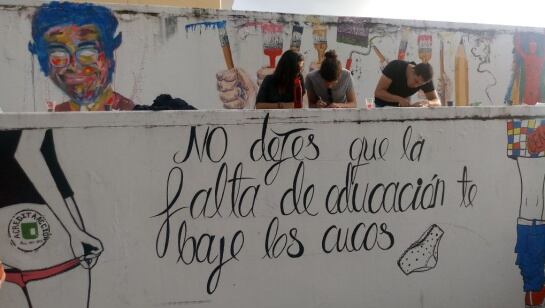 NO dejes que la
falta de educación te
baje los cucos
ACREDITACIÓN